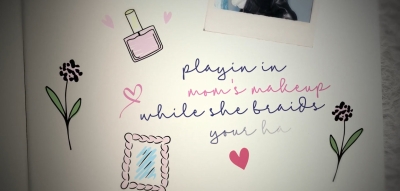 playin in
mom's makeup
while she braids
your ha